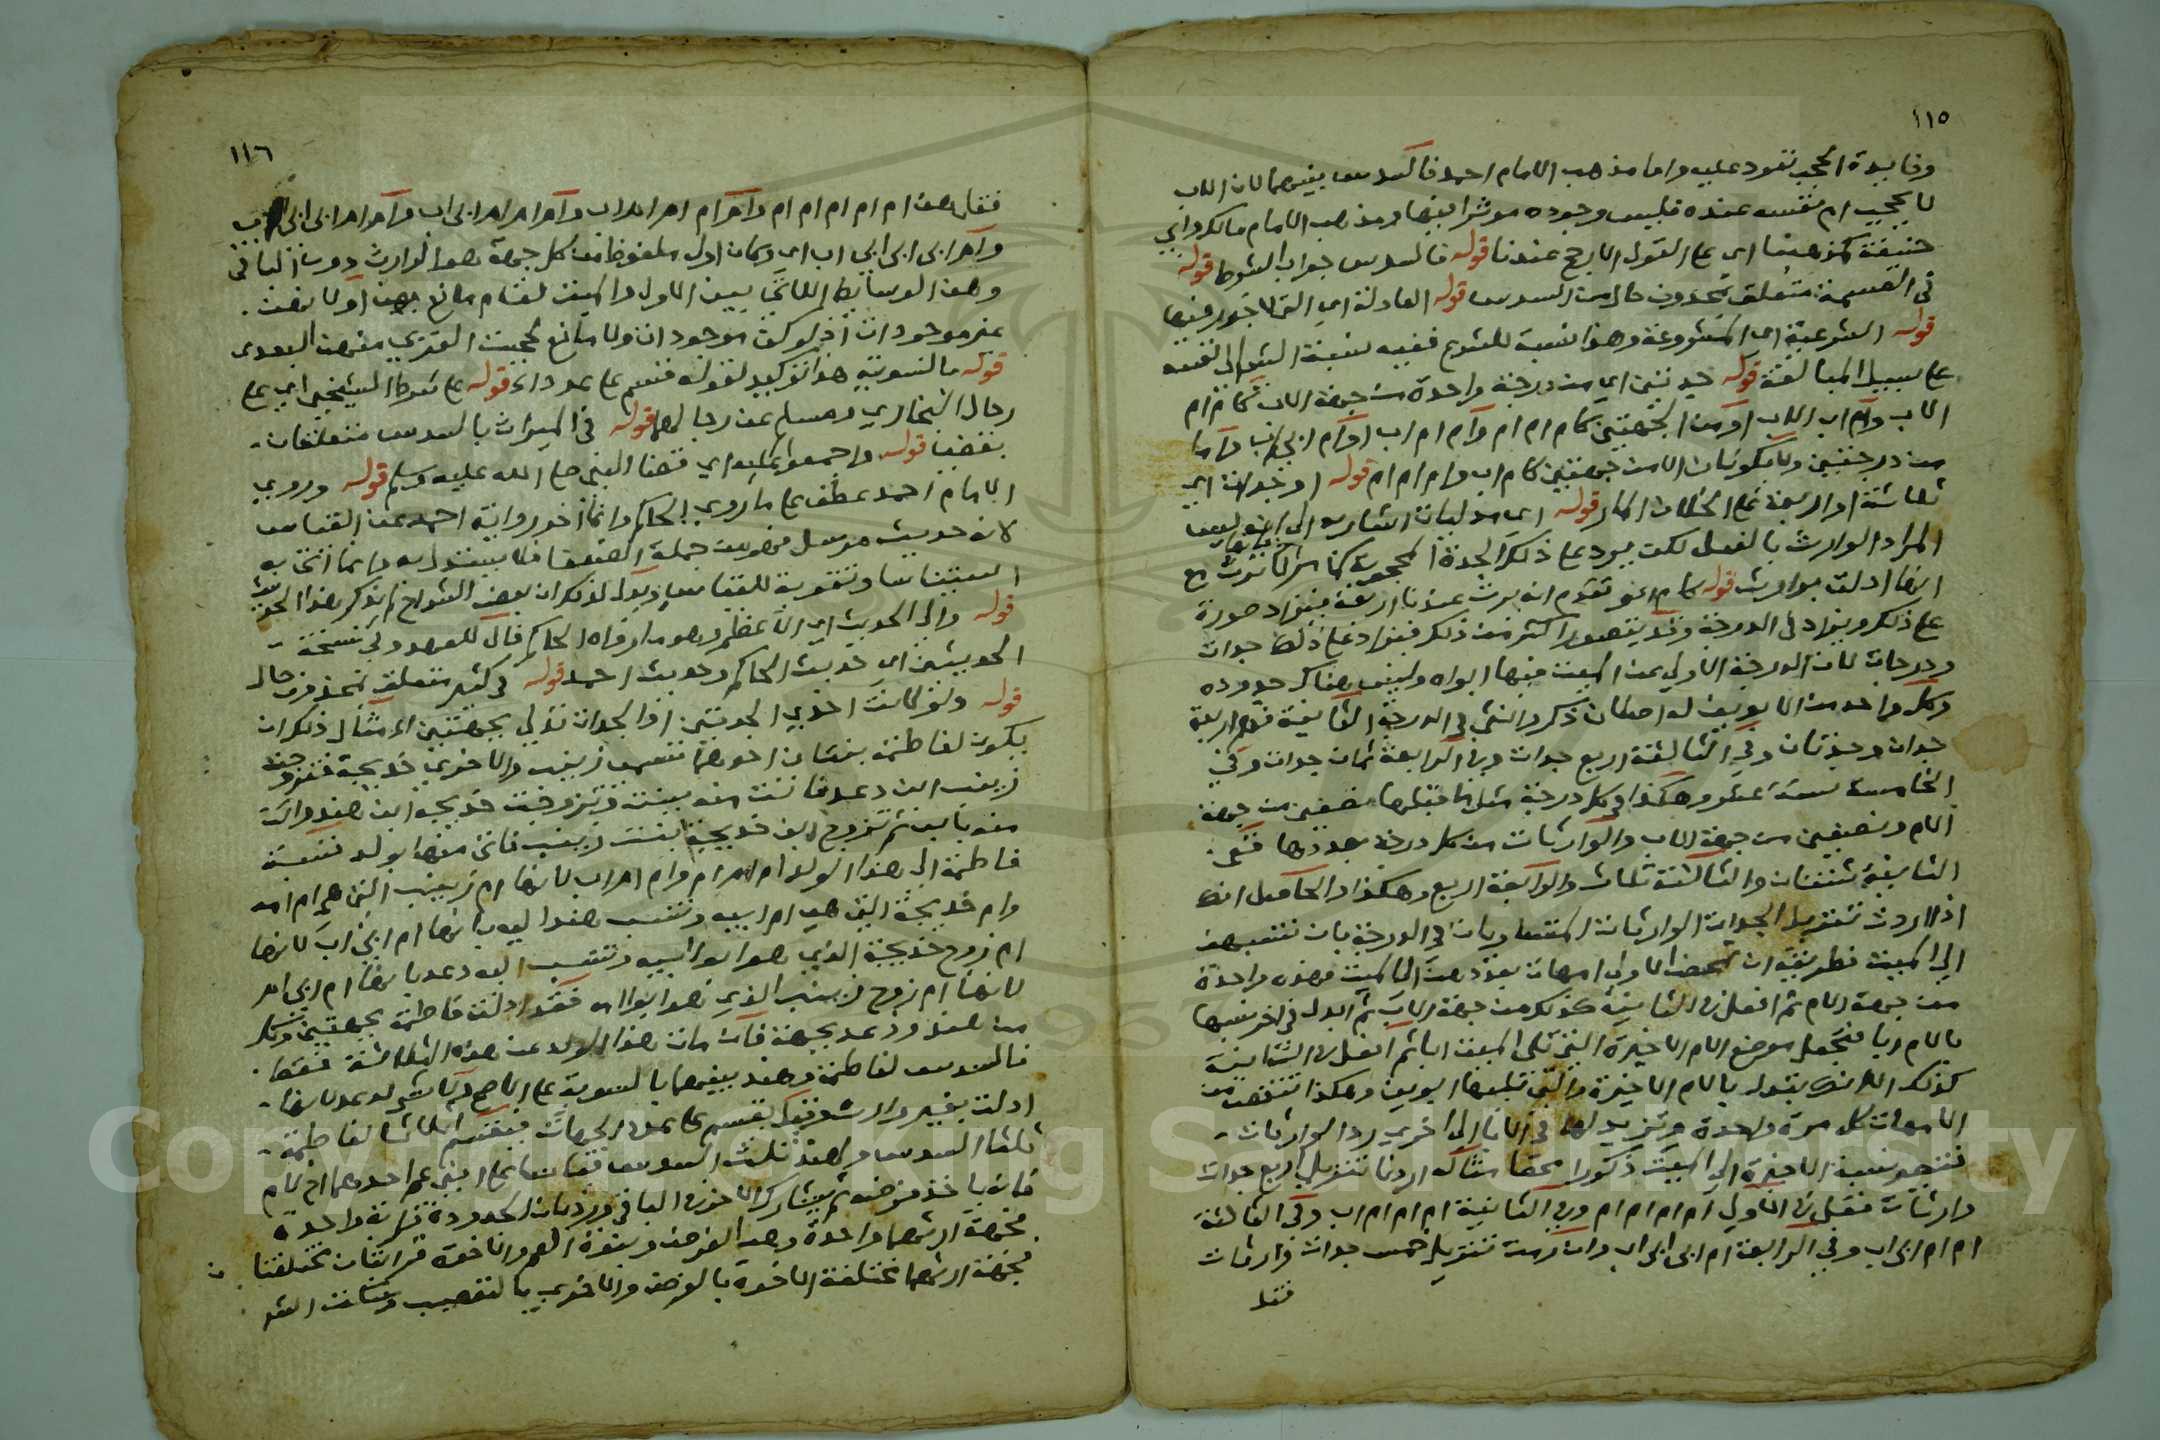 ١١٥
وفايدة الحجب تعود عليه واما مذهب الامام احمد فالسدس بينهما لان الاب
لا يحجب ام نفسه عنده فليس وجوده موثرا فيها ومذهب الامام مالك وابي
حنيفة كمذهبنا اي على القول الارجح عندنا قوله فالسدس جواب الشرط قوله
في القسمة متعلق بمحذوف حال من السدس قوله العادلة اي التي لا جور فيها
قوله الشرعية اي المشروعة وهذا نسبة للشرع ففيه نسبة الشي الى نفسه
على سبيل المبالغة قوله جدتين اي من درجة واحدة من جهة الاب كام ام
الاب وام اب الاب او من الجهتين كام ام ام وام ام اب او ام ابي اب واما
من درجتين ولا يكونان الا من جهتين كام اب وام ام ام قوله او جدات اي
ثلاثة او اربعة على الخلاف المار قوله
المراد الوارث بالفعل لكن يرد على ذلك الجدة المحجوبة
انها ادلت بوارث قوله تقدم انه يرث عندنا اربعة
على ذلك وينزاد في الدرجة وقد يتصور اكثر من ذلك
ودرجات لان الدرجة الاولى من الميت فيها ابواه وليس هناك جدوده
وكل واحد من الابوين له اصلان ذكر وانثى في الدرجة الثانية فهم اربعة
جدات وجدتان وفي الثالثة اربع جدات وفي الرابعة ثمان جدات وفي
الخامسة ستة عشر وهكذا في كل درجة مثل ما قبلها نصفهن من جهة
الام ونصفهن من جهة الاب والوارثات من كل درجة بعددها ففي
الثانية ثنتان والثالثة ثلاث والرابعة اربع وهكذا والحاصل انك
اذا اردت تنزيل الجدات الوارثات المتساويات في الدرجة بان تنسبهن
الى الميت فطريقه ان تمحض الاولى امهات بعددهن الى الميت فهذه واحدة
من جهة الام ثم انقل في الثانية كذلك من جهة الاب ثم ابدل في اخر نسبها
بالام ابا فتجعل موضع الام الاخيرة التي تلي الميت ابا ثم انقل في الثالثة
كذلك الا انك تبدل بالام الاخيرة والتي تليها ابوين وهكذا تنقص من
الامهات كل مرة واحدة وتزيد لها في الاباء الى اخرى
فتتجه نسبة الاخيرة الى الميت ذكورا محضا مثاله اردنا تنزيل اربع جدات
وارثات فقل في الاولى ام ام ام ام وفي الثانية ام ام ام اب وفي الثالثة
ام ام ابي اب وفي الرابعة ام ابي ابي اب وان اردت تنزيل خمس جدات وارثات
فقل
١١٦
فقل هن ام ام ام ام ام وام ام ام ام اب وام ام ام ابي اب وام ام ابي ابي اب
وام ابي ابي ابي اب اي وكان اول ملفوظ من كل جهة هو الوارث دون الباقي
وهن الوسايط اللاتي بين الاولى والميت لقيام مانع بهن او لانهن
غير موجودات اذ لو كن موجودات ولا مانع لحجبت القربى منهن البعدى
قوله بالسوية هذا توكيد لقوله فنقسم على عدد ... قوله على شرط الشيخين اي على
رجال البخاري ومسلم عن رجالهما قوله في الميراث بالسدس متعلقان
بقضى قوله واجمعوا عليه اي قضا النبي صلى الله عليه وسلم قوله وروى
الامام احمد عطف على ما روى الحاكم وانما اخر رواية احمد عن القياس
لانه حديث مرسل فهو من جملة الضعفا فلا يستدل به وانما اتى به
استيناسا وتقوية للقياس ويدل لذلك ان بعض الشراح لم يذكر هذا الحديث
قوله والى الحديث اي الاعظم وهو ما رواه الحاكم فال للعهد وفي نسخة
الحديثين اي حديث الحاكم وحديث احمد قوله في كثير متعلق بمحذوف حال
قوله ولو كانت احدى الجدتين او الجدات تدلي بجهتين الى مثال ذلك ان
يكون لفاطمة بنتان احدهما تسمى زينب والاخرى خديجة فتزوجت
زينب ابن دعد فاتت منه ببنت وتزوجت خديجة ابن هند واتت
منه بابن ثم تزوج ابن خديجة بنت زينب فاتى منها بولد فنسبة
فاطمة الى هذا الولد ام ام ام وام ام اب لانها ام زينب التي هي ام امه
وام خديجة التي هي ام ابيه وتنسب هند اليه بانها ام ابي اب لانها
ام زوج خديجة الذي هو ابو ابيه وتنسب اليه دعد بانها ام ابي ام
لانها ام زوج زينب الذي هو ابو امه فقد ادلت فاطمة بجهتين وكل
من هند ودعد بجهة فان مات هذا الولد عن هذه الثلاثة فقط
فالسدس لفاطمة وهند بينهما بالسوية على الاصح ولا شي لدعد لانها
ادلت بغير وارث وقيل يقسم على عدد الجهات فيقسم اثلاثا لفاطمة
ثلثا السدس ولهند ثلث السدس قياسا على ابني عم احدهما اخ لام
فانه ياخذ فرضه ثم يشارك الاخر في الباقي ورد بان الجدودة قرابة واحدة
فجهة ارثها واحدة وهي الفرض وبنوة العم والاخوة قرابتان مختلفتان
فجهة ارثهما مختلفة الاخوة بالفرض والاخرى بالتعصيب وكانت القد